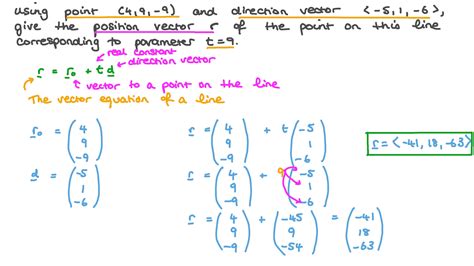 using point (4,9,-9) and direction vector <-5,1,-6>,
give the position vector r of the point on this line
corresponding to parameter t=9.
real constant
r = r₀ + t d
direction vector
vector to a point on the line
The vector equation of a line
r₀ = (4 9 -9)
d = (-5 1 -6)
r = (4 9 -9) + t (-5 1 -6)
r = (4 9 -9) + 9 (-5 1 -6)
r = (4 9 -9) + (-45 9 -54) = (-41 18 -63)
r = <-41, 18, -63>